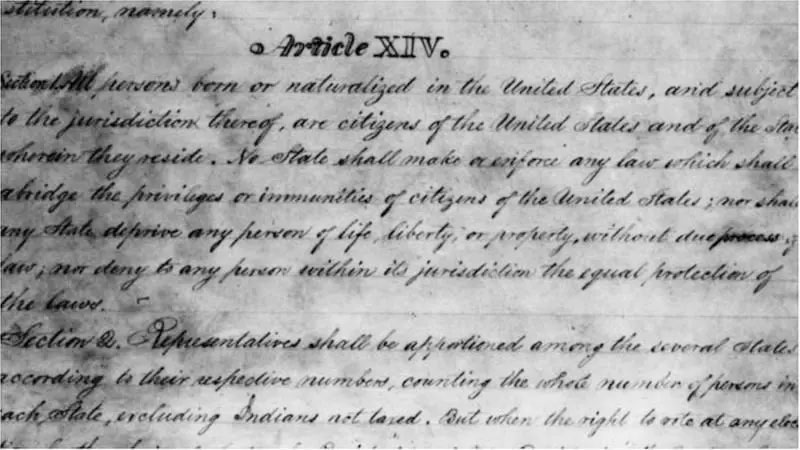 stitution, namely:
Article XIV.
Section 1. All persons born or naturalized in the United States, and subject
to the jurisdiction thereof, are citizens of the United States and of the Sta
wherein they reside. No State shall make or enforce any law which shall
abridge the privileges or immunities of citizens of the United States; nor shall
any State deprive any person of life, liberty, or property, without due process of
law; nor deny to any person within its jurisdiction the equal protection of
the laws.
Section 2. Representatives shall be apportioned among the several States
according to their respective numbers, counting the whole number of persons in
each State, excluding Indians not taxed. But when the right to vote at any elec